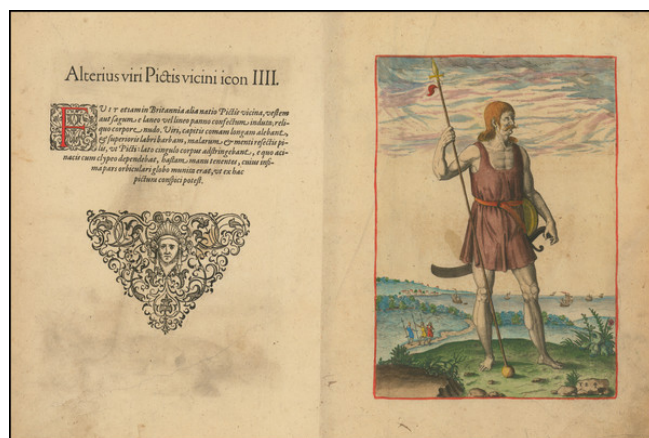 Alterius viri Pictis vicini icon IIII.
FUIT etiam in Britannia alia natio Pictis vicina, vestem
aut sagum e laneo vel lineo panno confectum induto, reli-
quo corpore nudo. Viri, capitis comam longam alebant,
& superioris labri barbam, malarum & menti resectis pi-
lis, ut Picti lato cingulo corpus adstringebant, e quo aci-
nacis cum clypeo dependebat, hastam manu tenentes, cuius infi-
ma pars orbiculari globo munita erat, ut ex hac
pictura conspici potest.